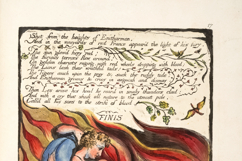 Shot from the heights of Enitharmon;
And in the vineyards of red France appear'd the light of his fury.
The sun glow'd fiery red!
The furious terrors flew around!
On golden chariots raging with red wheels dropping with blood;
The Lions lash their wrathful tails!
The Tigers couch upon the prey & suck the ruddy tide:
And Enitharmon groans & cries in anguish and dismay.
Then Los arose his head he reard in snaky thunders clad:
And with a cry that shook all nature to the utmost pole,
Call'd all his sons to the strife of blood.
FINIS